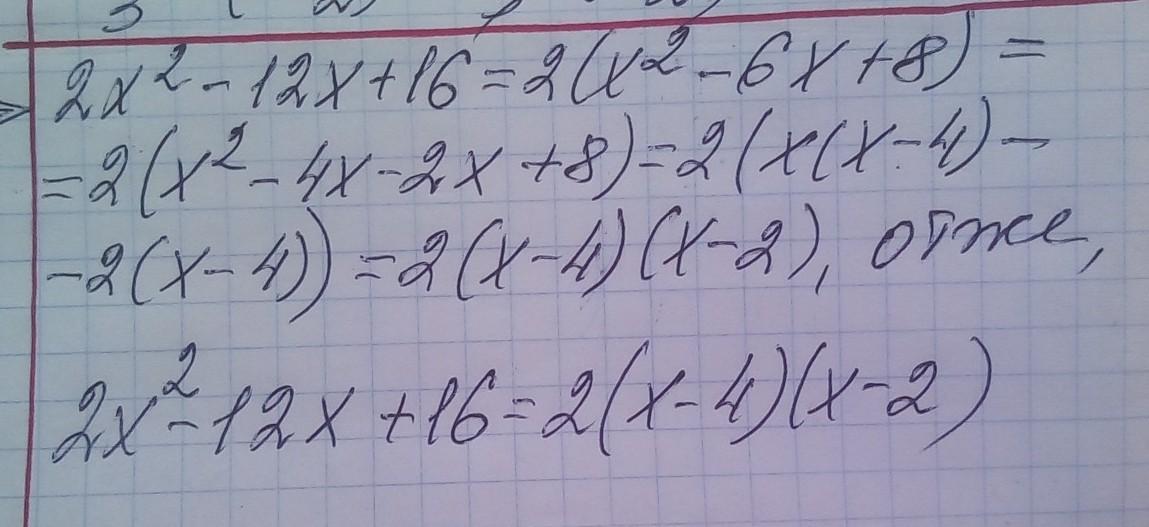 2x² - 12x + 16 = 2(x² - 6x + 8) =
= 2(x² - 4x - 2x + 8) = 2(x(x - 4) -
- 2(x - 4)) = 2(x - 4)(x - 2), отже,
2x² - 12x + 16 = 2(x - 4)(x - 2)